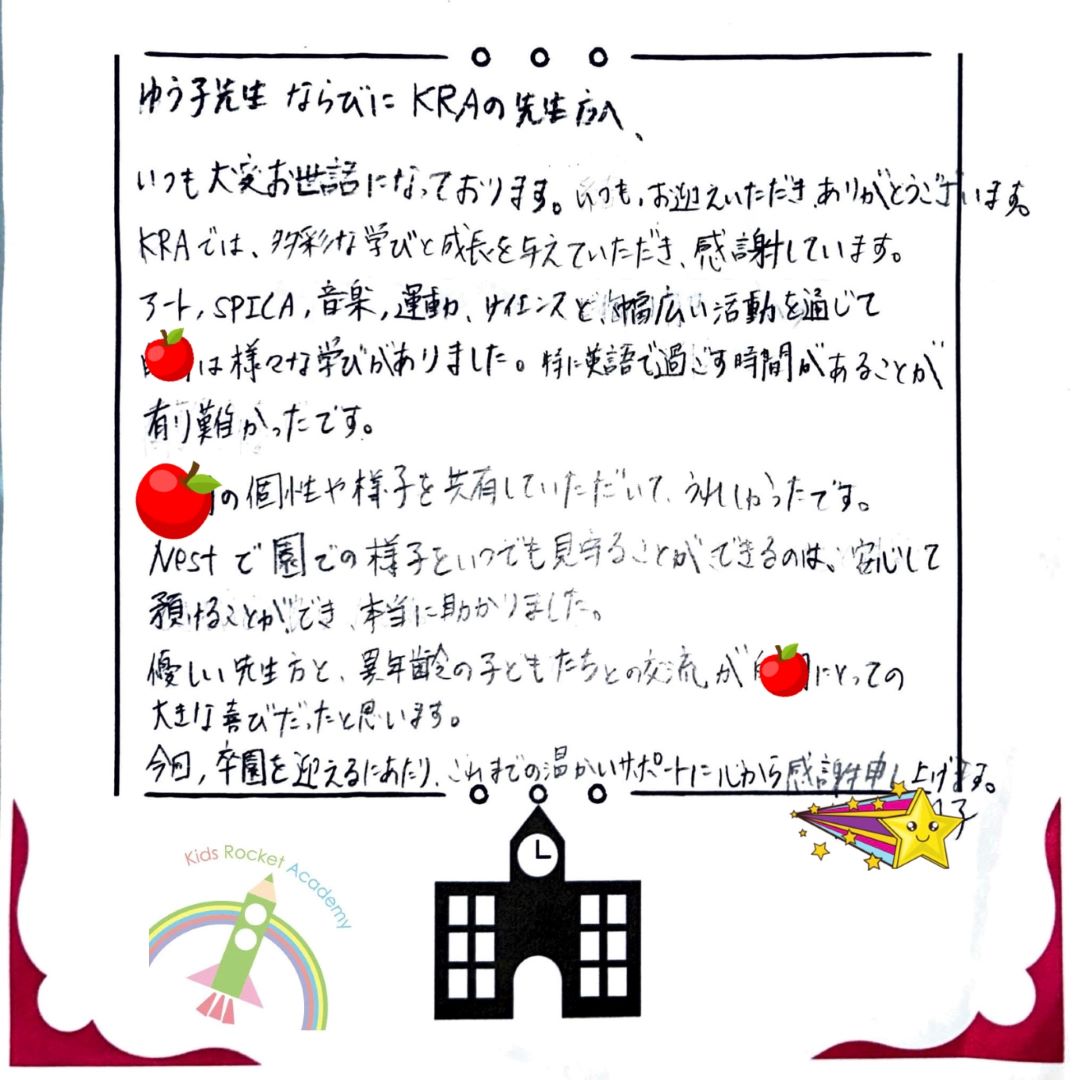 ゆう子先生 ならびに KRAの先生方へ、
いつも大変お世話になっております。いつも、お迎えいただき、ありがとうございます。
KRAでは、多彩な学びと成長を与えていただき、感謝しています。
アート, SPICA, 音楽, 運動、サイエンスと、幅広い活動を通じて
は様々な学びがありました。特に英語で過ごす時間があることが
有り難かったです。
の個性や様子を共有していただいて、うれしかったです。
Nestで園での様子をいつでも見守ることができるのは、安心して
預けることができ、本当に助かりました。
優しい先生方と、異年齢の子どもたちとの交流が にとっての
大きな喜びだったと思います。
今回, 卒園を迎えるにあたり、これまでの温かいサポートに心から感謝申し上げます。
Kids Rocket Academy